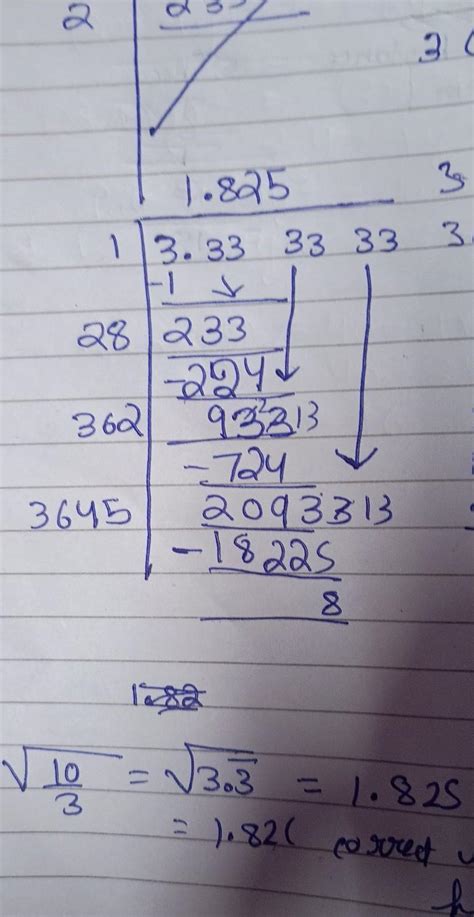 2 233
3
1.825 3
1 3.33 33 33 3.
-1
28 233
-224
362 93313
-724
3645 2093313
-18225
8
1.82
√10/3 = √3.3̅ = 1.825
= 1.82( correct
h